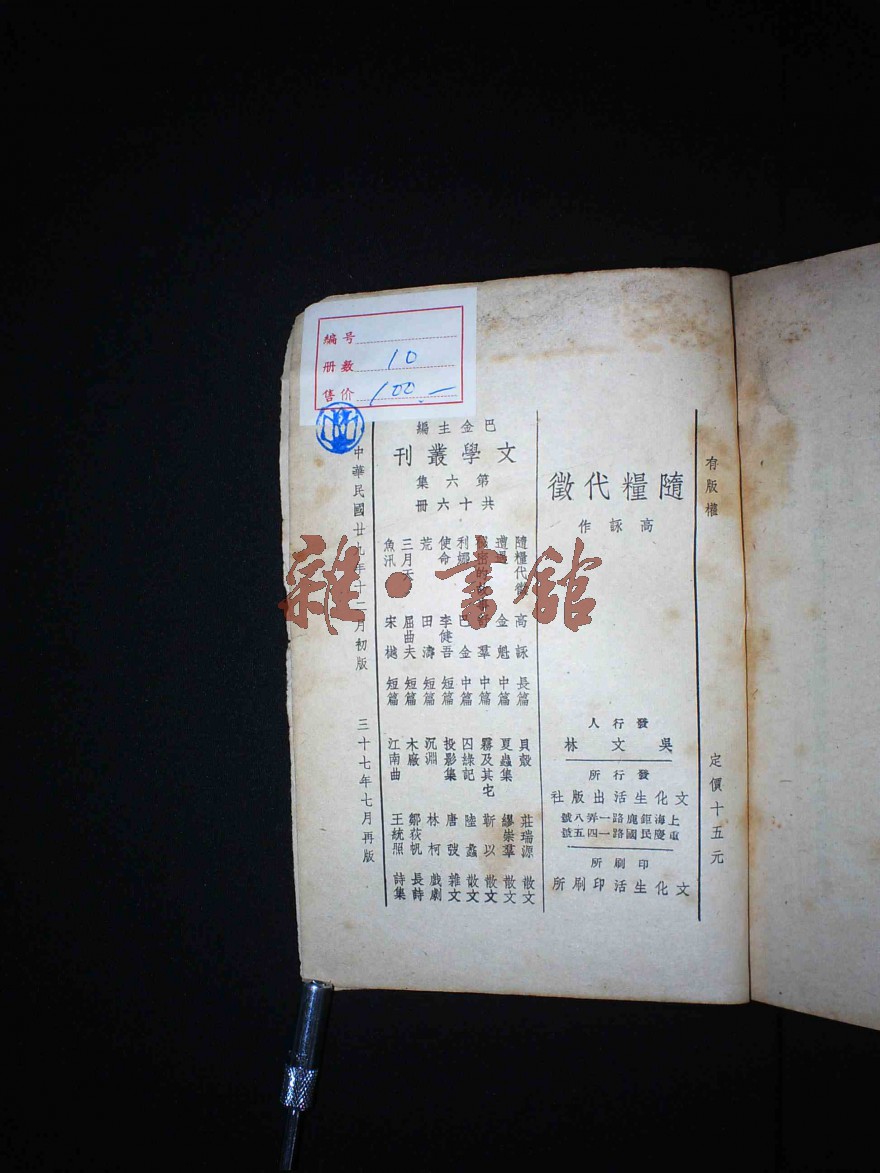 有版權
定價十五元
隨糧代徵
高詠作
發行人
吳文林
發行所
文化生活出版社
上海鉅鹿路一弄八號
重慶民國路一四五號
印刷所
文化生活印刷所
巴金主編
文學叢刊
第六集
共十六冊
隨糧代徵 高詠 長篇
遭遇 金魁 中篇
羣 中篇
利娜 巴金 中篇
使命 李健吾 短篇
荒 田濤 短篇
三月天 屈曲夫 短篇
魚汛 宋樾 短篇
貝殼 莊瑞源 散文
夏蟲集 繆崇羣 散文
霧及其它 靳以 散文
囚綠記 陸蠡 散文
投影集 唐弢 雜文
沉淵 林柯 戲劇
木廠 鄒荻帆 長詩
江南曲 王統照 詩集
中華民國廿九年十二月初版
三十七年七月再版
編号
册数 10
售价 100.—
雜·書館